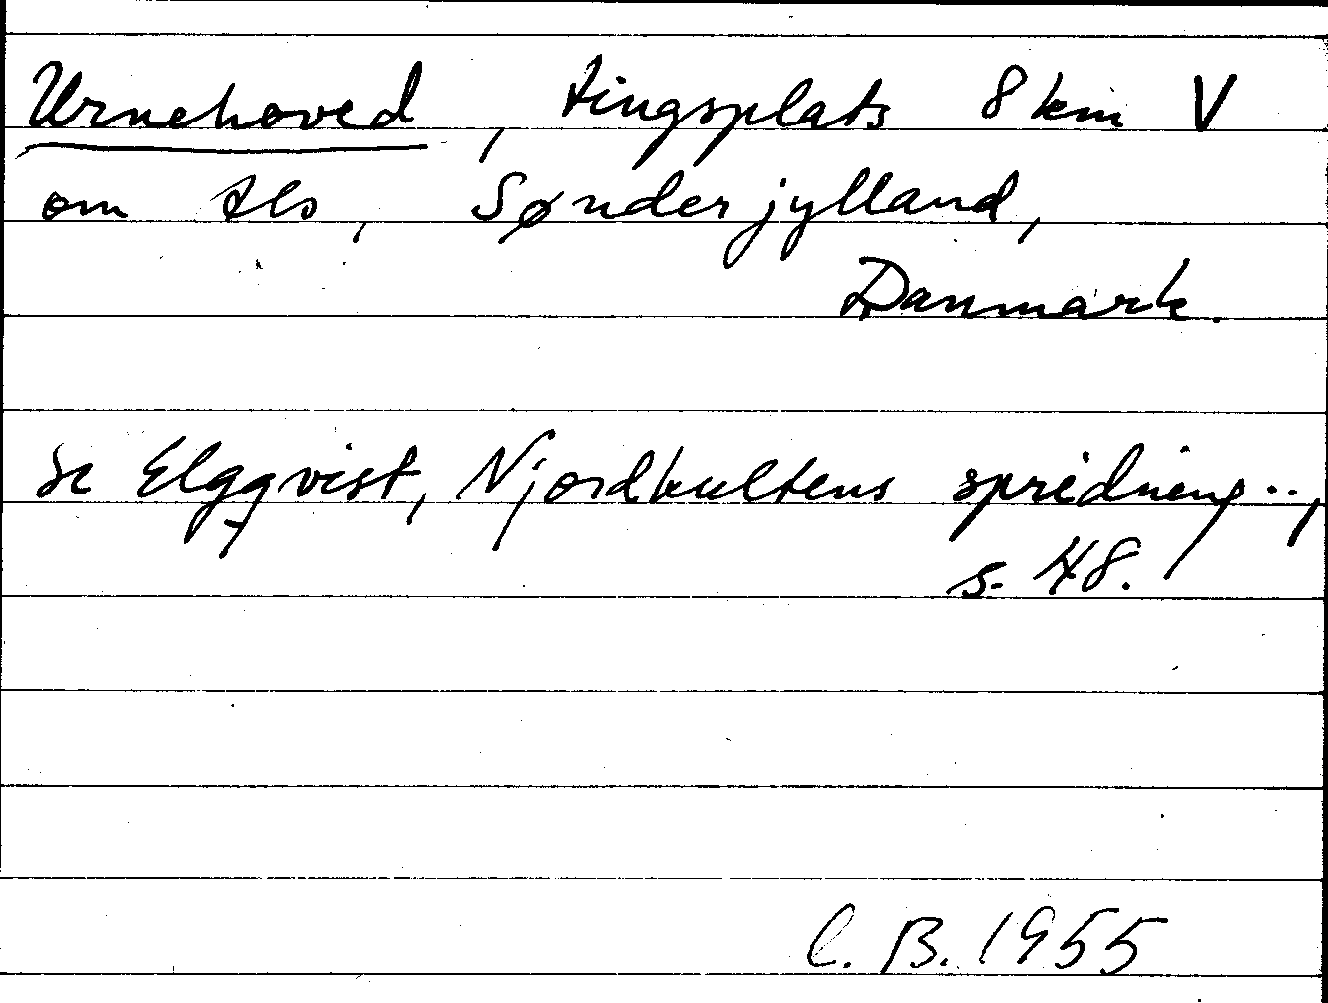 Urnehoved, tingsplats 8 km V
om Als, Sønderjylland,
Danmark.
se Elgqvist, Njordkultens spridning..,
s. 48.
C. B. 1955